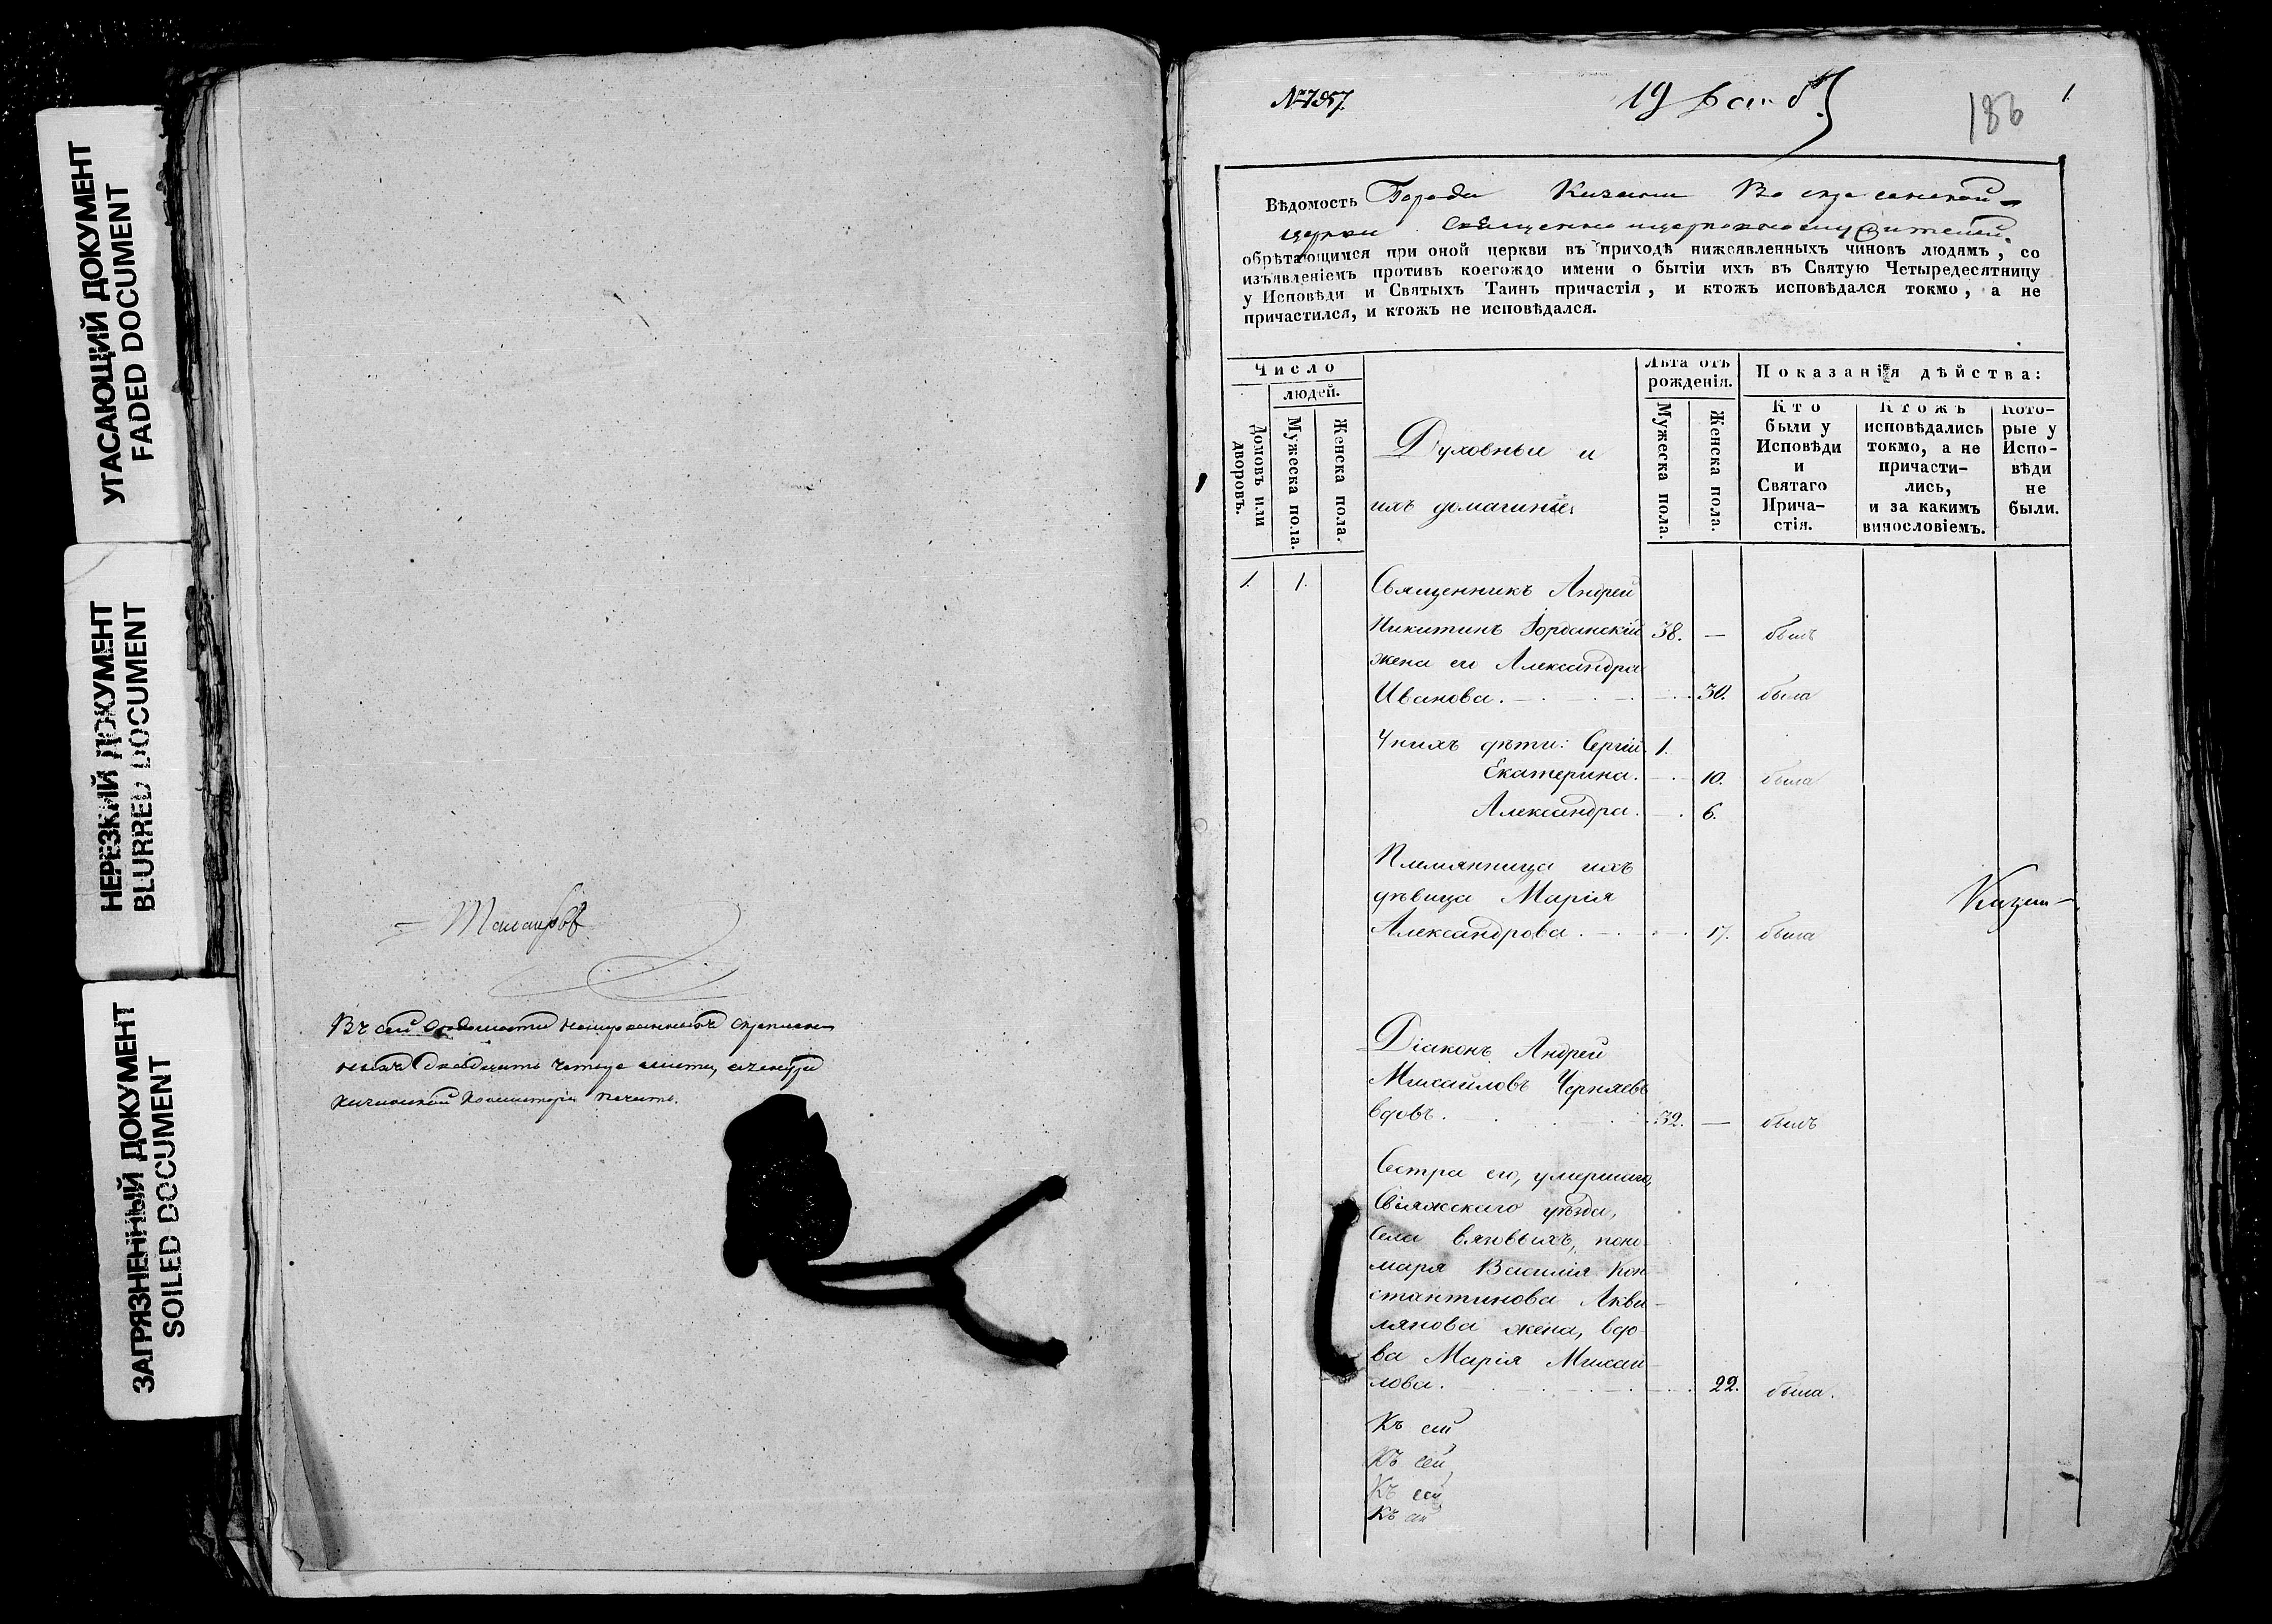 УГАСАЮЩИЙ ДОКУМЕНТ
FADED DOCUMENT
НЕРЕЗКИЙ ДОКУМЕНТ
BLURRED DOCUMENT
ЗАГРЯЗНЕННЫЙ ДОКУМЕНТ
SOILED DOCUMENT
Въ сей
листа,
Консисторіи печать.
19
186
1.
Вѣдомость Города Казани
церкви
обрѣтающимся при оной церкви въ приходѣ нижеявленныхъ чиновъ людямъ, со
изъявленіемъ противъ коегождо имени о бытіи ихъ въ Святую Четыредесятницу
у Исповѣди и Святыхъ Таинъ причастія, и ктожъ исповѣдался токмо, а не
причастился, и ктожъ не исповѣдался.
Число
людей.
Домовъ или дворовъ.
Мужеска пола.
Женска пола.
Духовные и
ихъ домашніе
Лѣта отъ
рожденія.
Мужеска пола.
Женска пола.
Показанія дѣйства:
Кто
были у
Исповѣди
и
Святаго
Прича-
стія.
Ктожъ
исповѣдались
токмо, а не
причасти-
лись,
и за какимъ
винословіемъ.
Кото-
рые у
Испо-
вѣди
не
были.
1. 1. Священникъ Андрей
Никитинъ Іорданскій 38. — былъ
жена его Александра
Иванова. 30. была
У нихъ дѣти: Сергій 1.
Екатерина. 10. была
Александра. 6.
Племянница ихъ
дѣвица Марія
Александрова. 17. была
Діаконъ Андрей
Михайловъ Черняевъ
вдовъ. 32. — былъ
Сестра его, умершаго,
Свіяжскаго уѣзда,
Села Вязовыхъ, поно-
маря Василія Кон-
стантинова Аква-
лянова жена, вдо-
ва Марія Михай-
лова. 22. была.
Къ сей
Къ сей
Къ сей
Къ сей